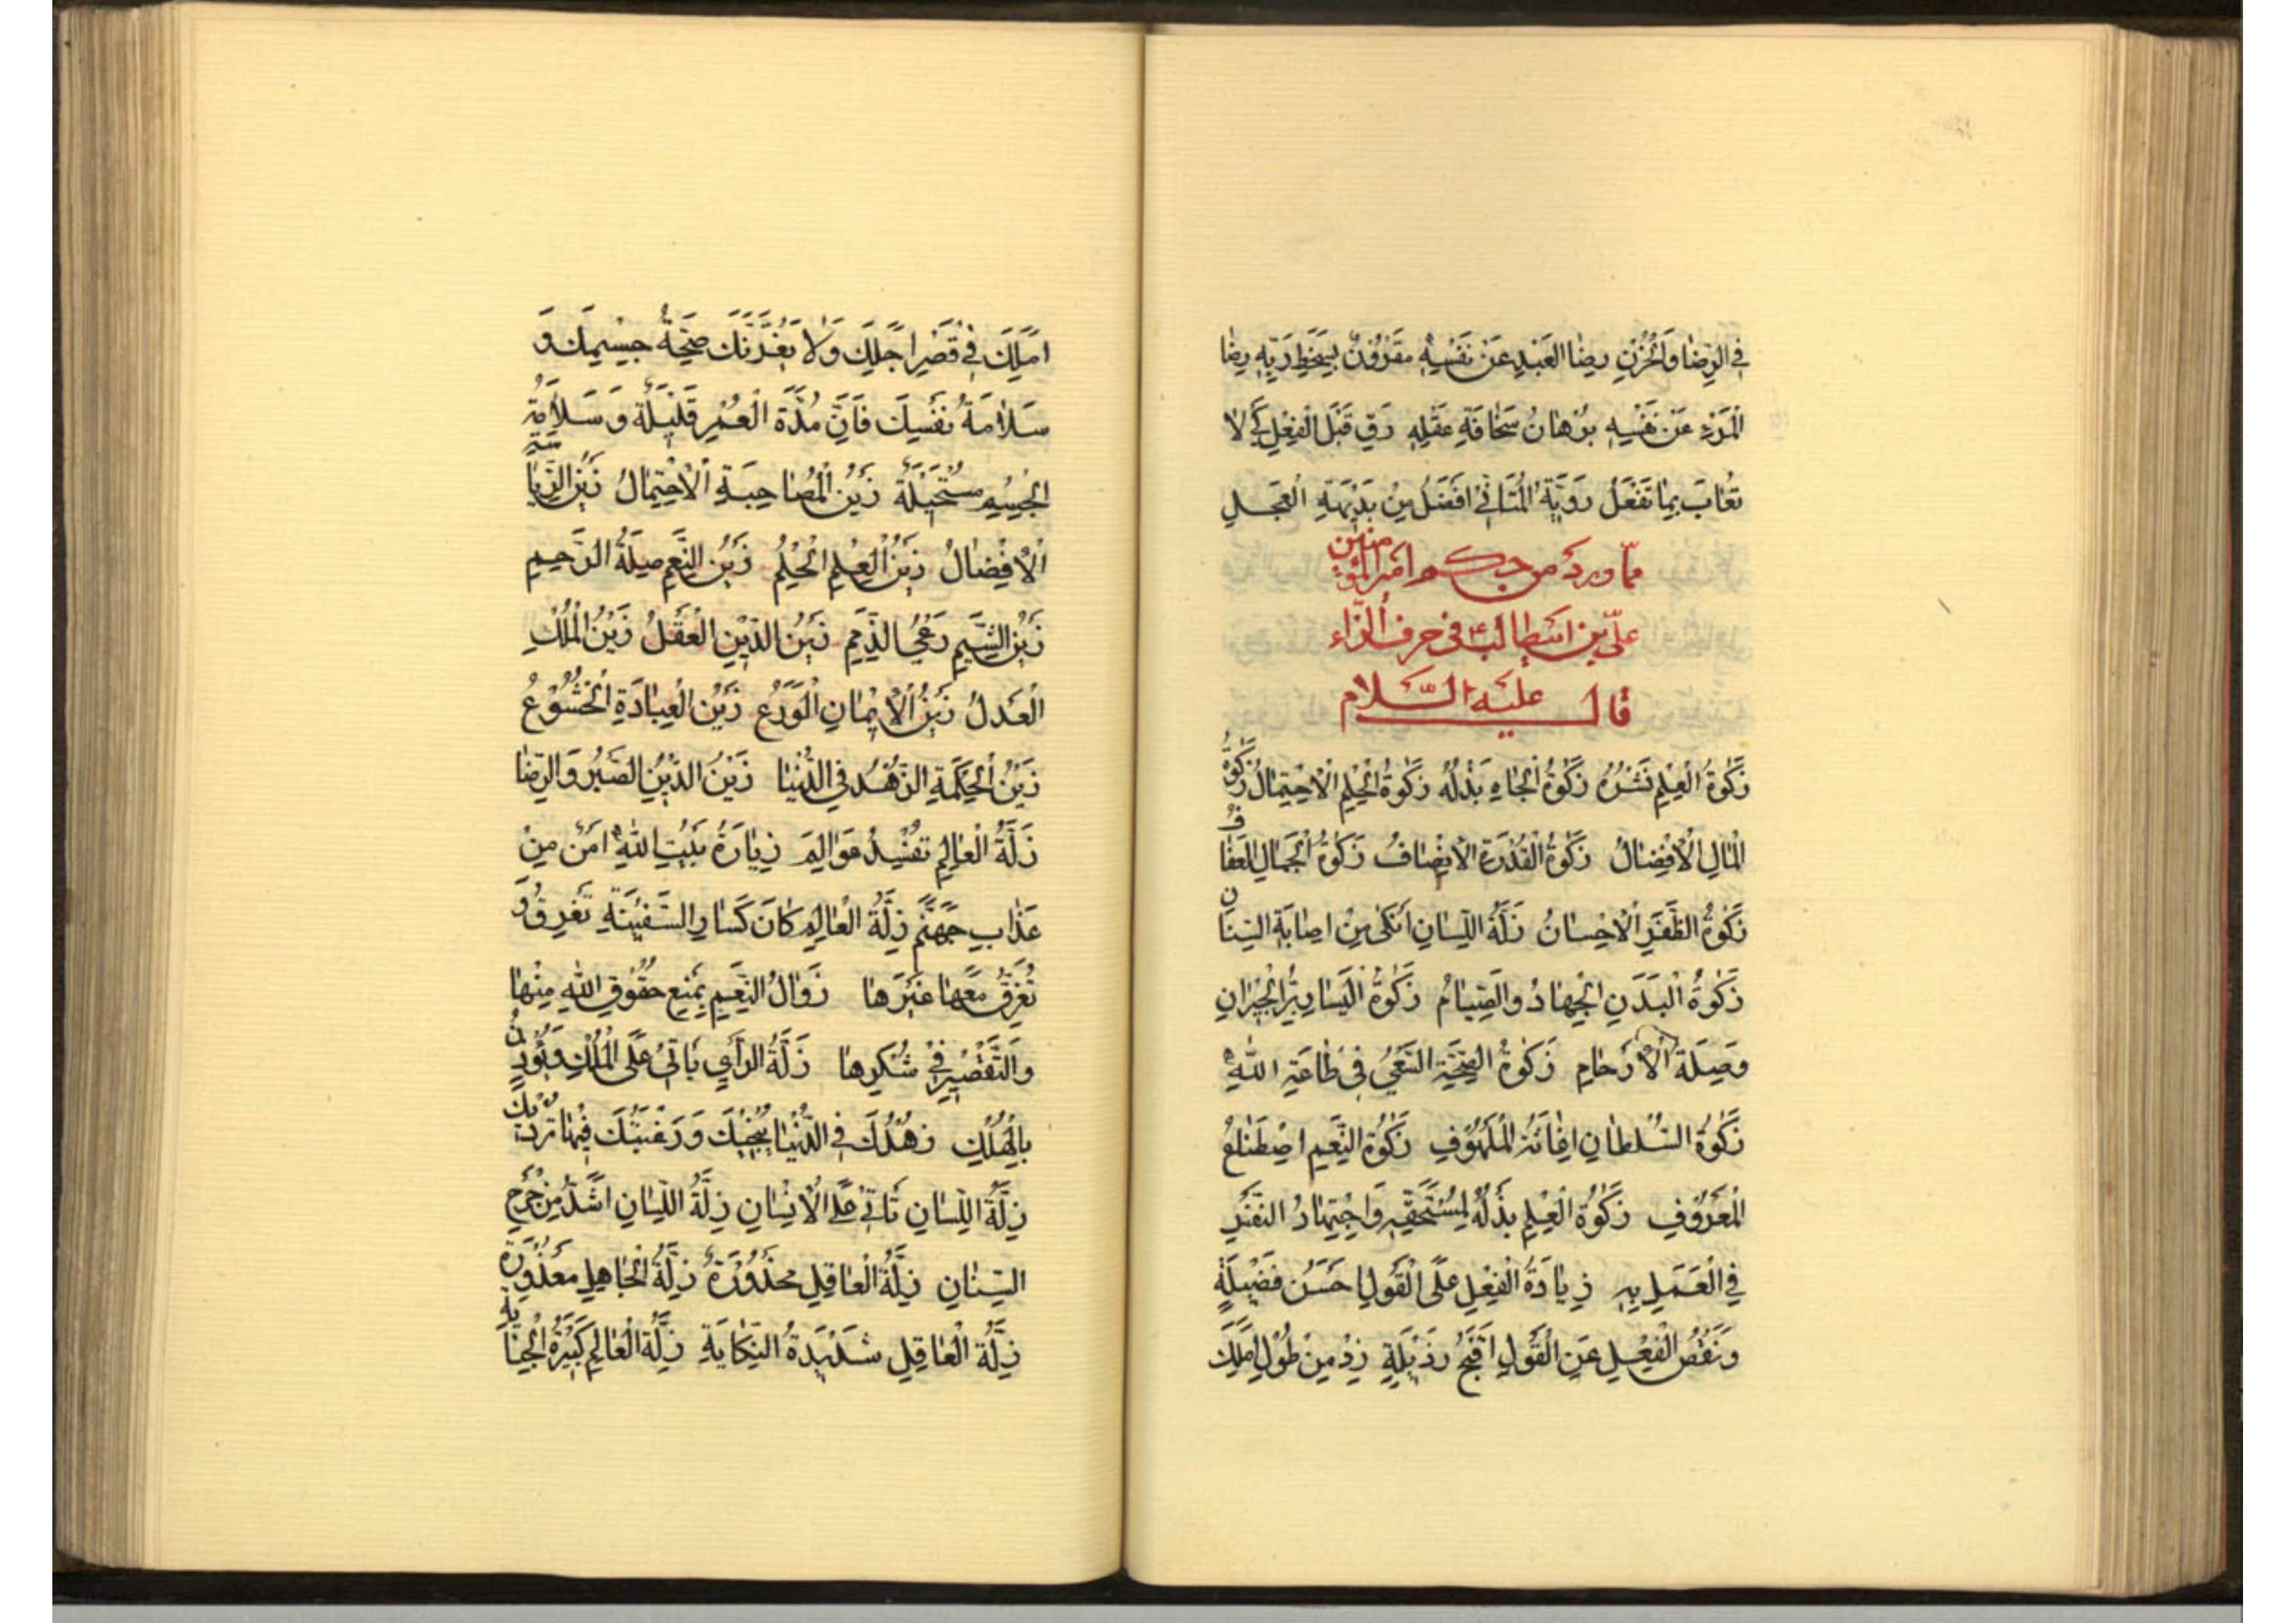 في الرضا والحزن رضا العبد عن نفسه مقرون بسخط ربه رضا
المرء عن نفسه برهان سخافة عقله رق قبل الفعل كي لا
تعاب بما تفعل روية المتاني افضل من بديهة العجل
مما ورد من حكم امير المؤمنين
علي بن ابيطالب ع في حرف الزاء
قال عليه السلام
زكوة العلم نشره زكوة الجاه بذله زكوة الحلم الاحتمال زكوة
المال الافضال زكوة القدرة الانصاف زكوة الجمال العفاف
زكوة الظفر الاحسان زلة اللسان انكى من اصابة السنان
زكوة البدن الجهاد والصيام زكوة اليسار بر الجيران
وصلة الارحام زكوة الصحة السعي في طاعة الله
زكوة السلطان اغاثة الملهوف زكوة النعم اصطناع
المعروف زكوة العلم بذله لمستحقه واجتهاد النفس
في العمل به زيادة الفعل على القول احسن فضيلة
ونقص الفعل عن القول اقبح رذيلة زد من طول املك
املك في قصر اجلك ولا يغرنك صحة جسمك و
سلامة نفسك فان مدة العمر قليلة وسلامة
الجسم مستحيلة زين المصاحبة الاحتمال زين الرياسة
الافضال زين العلم الحلم زين النعم صلة الرحم
زين الشيم رعي الذمم زين الدين العقل زين الملك
العدل زين الايمان الورع زين العبادة الخشوع
زين الحكمة الزهد في الدنيا زين الدين الصبر والرضا
زلة العالم تفسد عوالم زيارة بيت الله امن من
عذاب جهنم زلة العالم كانكسار السفينة تغرق و
تغرق معها غيرها زوال النعم بمنع حقوق الله منها
والتقصير في شكرها زلة الراي تاتي على الملك وتؤذن
بالهلك زهدك في الدنيا ينجيك ورغبتك فيها ترديك
زلة اللسان تاتي على الانسان زلة اللسان اشد من جرح
السنان زلة العاقل محذورة زلة الجاهل معذورة
زلة العاقل شديدة النكاية زلة العالم كبيرة الجناية